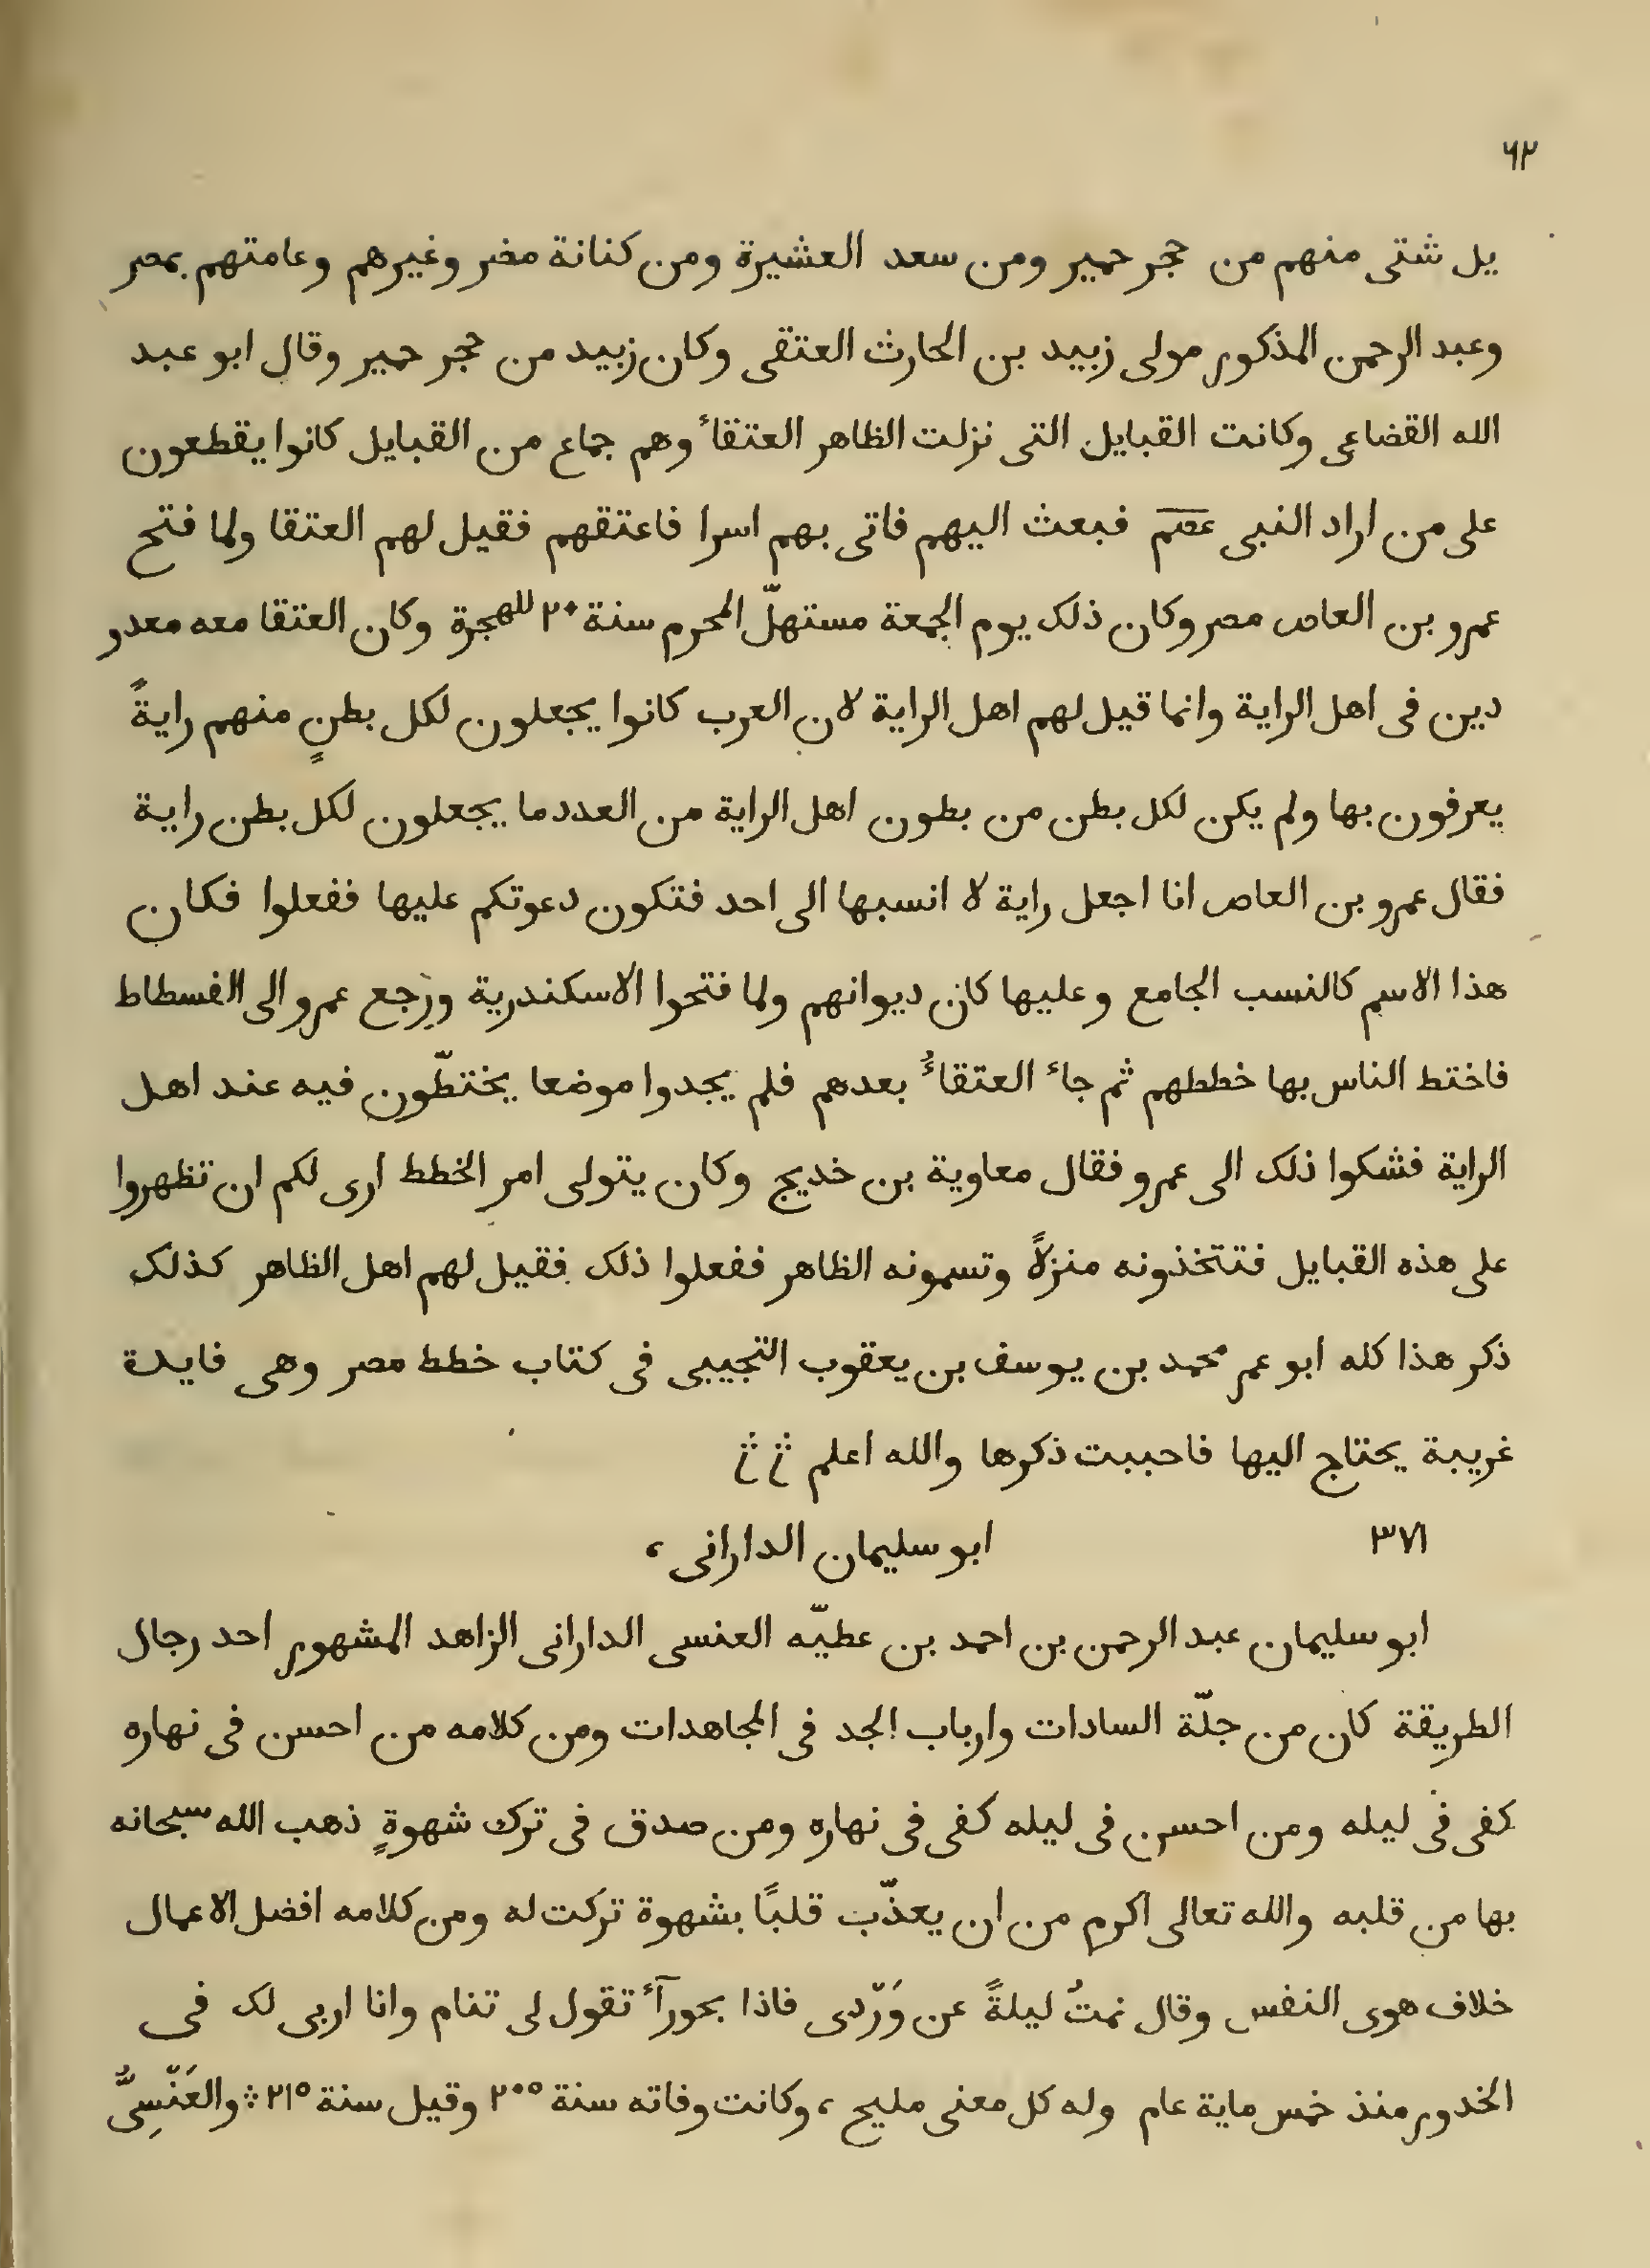 ٦٢
يل شتى منهم من حجر حمير ومن سعد العشيرة ومن كنانة مضر وغيرهم وعامتهم بمصر
وعبد الرحمن المذكور مولى زبيد بن الحارث العتقى وكان زبيد من حجر حمير وقال ابو عبد
الله القضاعى وكانت القبايل التى نزلت الظاهر العتقاء وهم جماع من القبايل كانوا يقطعون
على من اراد النبى عصم فبعث اليهم فاتى بهم اسرا فاعتقهم فقيل لهم العتقا ولما فتح
عمرو بن العاص مصر وكان ذلك يوم الجمعة مستهلّ المحرم سنة ٢٠ للهجرة وكان العتقا معه معدو
دين فى اهل الراية وانما قيل لهم اهل الراية لان العرب كانوا يجعلون لكل بطنٍ منهم رايةً
يعرفون بها ولم يكن لكل بطن من بطون اهل الراية من العدد ما يجعلون لكل بطن راية
فقال عمرو بن العاص انا اجعل راية لا انسبها الى احد فتكون دعوتكم عليها ففعلوا فكان
هذا الاسم كالنسب الجامع وعليها كان ديوانهم ولما فتحوا الاسكندرية ورجع عمرو الى الفسطاط
فاختط الناس بها خططهم ثم جاء العتقاءُ بعدهم فلم يجدوا موضعا يختطّون فيه عند اهل
الراية فشكوا ذلك الى عمرو فقال معاوية بن خديج وكان يتولى امر الخطط ارى لكم ان تظهروا
على هذه القبايل فتتخذونه منزلاً وتسمونه الظاهر ففعلوا ذلك فقيل لهم اهل الظاهر كذلك
ذكر هذا كله ابو عمر محمد بن يوسف بن يعقوب التجيبى فى كتاب خطط مصر وهى فايدة
غريبة يحتاج اليها فاحببت ذكرها والله اعلم
٣٧١ ابو سليمان الدارانى،
ابو سليمان عبد الرحمن بن احمد بن عطيّه العنسى الدارانى الزاهد المشهور احد رجال
الطريقة كان من جلّة السادات وارباب الجد فى المجاهدات ومن كلامه من احسن فى نهاره
كفى فى ليله ومن احسن فى ليله كفى فى نهاره ومن صدق فى ترك شهوةٍ ذهب الله سبحانه
بها من قلبه والله تعالى اكرم من ان يعذّب قلبًا بشهوة تركت له ومن كلامه افضل الاعمال
خلاف هوى النفس وقال نمتُ ليلةً عن وَرْدى فاذا بحورآء تقول لى تنام وانا اربى لك فى
الخدور منذ خمس ماية عام وله كل معنى مليح، وكانت وفاته سنة ٢٠٥ وقيل سنة ٢١٥ ؞ والعَنْسِىُّ